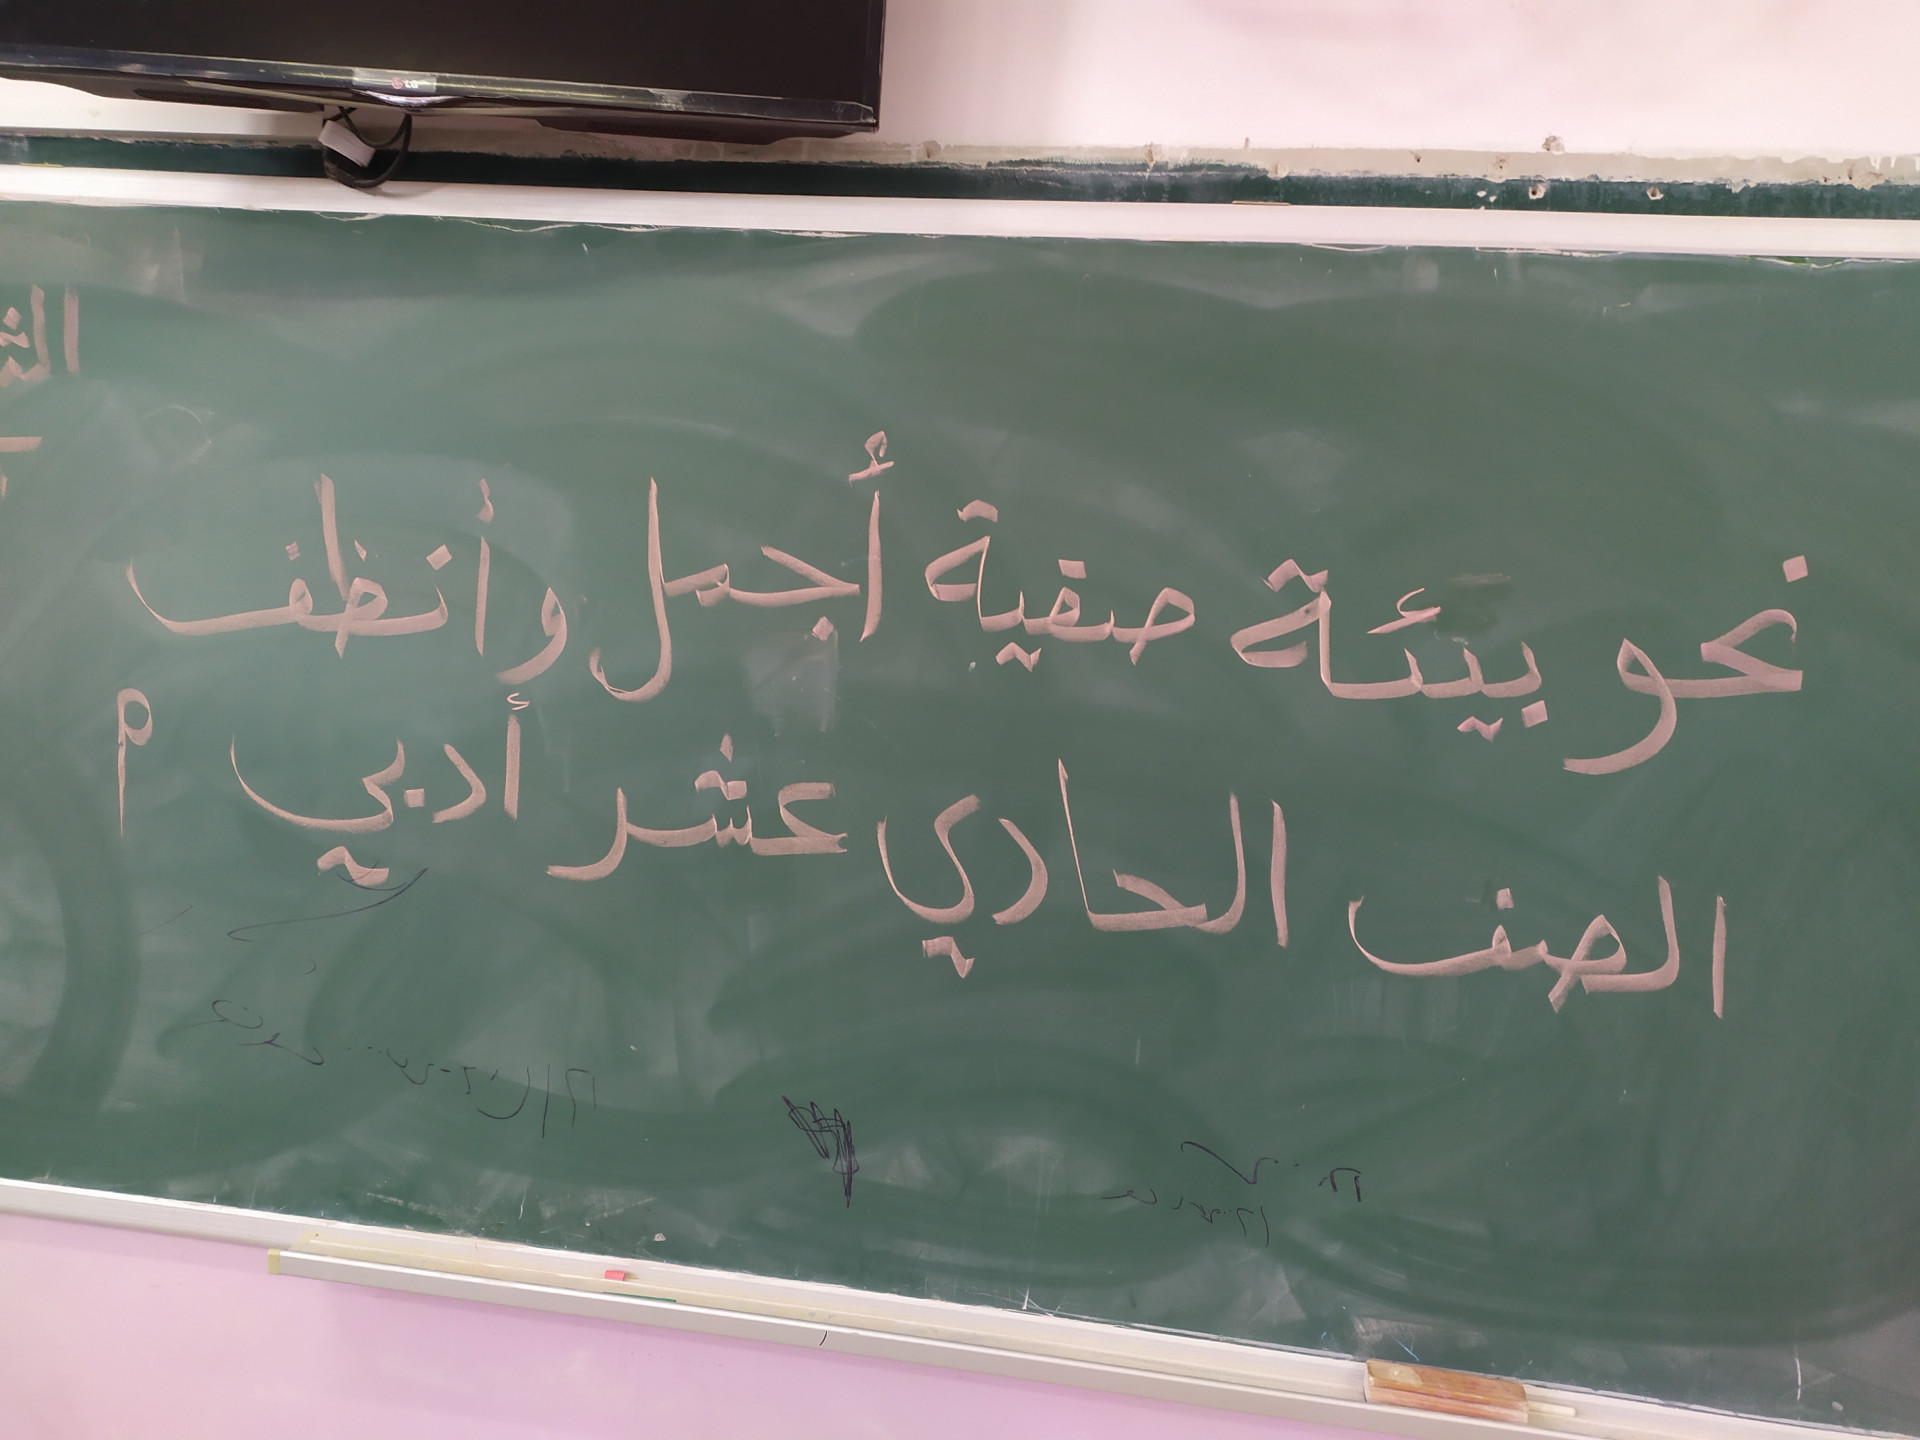 نحو بيئة صفية أجمل وأنظف
الصف الحادي عشر أدبي م
LG